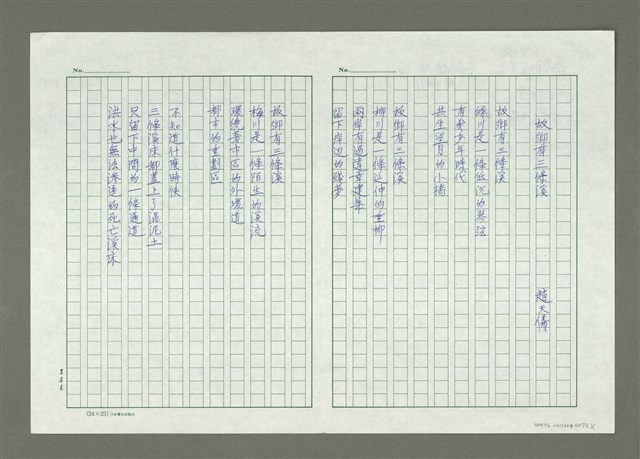 No.
故鄉有三條溪
趙天儀
故鄉有三條溪
綠川是一條低沉的琴弦
有着少年時代
共生望月的小橋
故鄉有三條溪
柳川是一條延伸的垂柳
兩岸有過違章建築
留下岸边的殘夢
No.
故鄉有三條溪
梅川是一條陌生的溪流
環繞著市區的外環道
都市的重劃區
不知道什麼時候
三條溪床都蓋上了混泥土
只留下中間的一條通道
洪水也無法滲透的死亡溪床
(24×25)